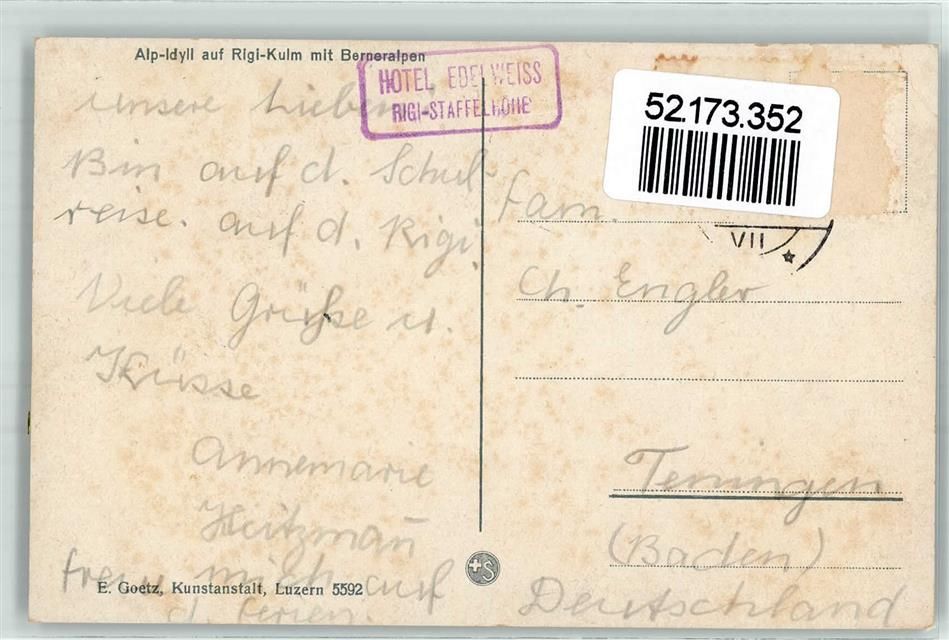 Alp-Idyll auf Rigi-Kulm mit Berneralpen
HOTEL EDELWEISS
RIGI-STAFFELHÖHE
52.173.352
Unsere Lieben!
Bin auf d. Schul-
reise. auf d. Rigi.
Viele Grüße u.
Küsse
Annemarie
Heitzmañ
freue mich auf
d. Ferien.
E. Goetz, Kunstanstalt, Luzern 5592
VII
Fam.
Ch. Engler
Teningen
(Baden)
Deutschland
S